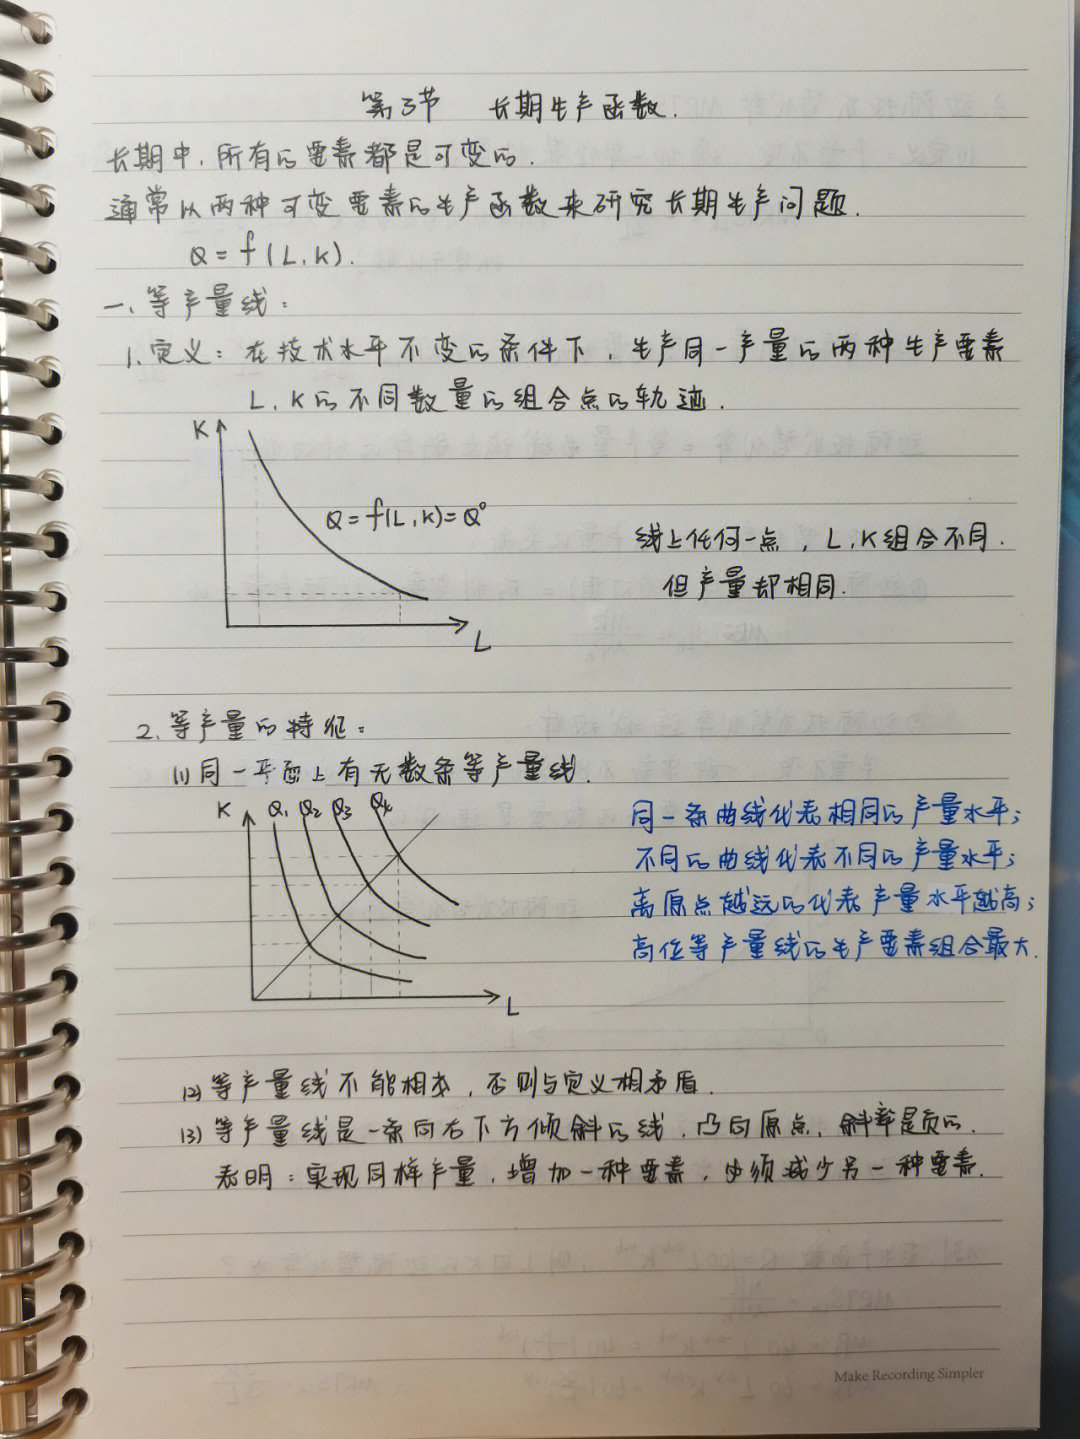 第3节 长期生产函数.
长期中,所有的要素都是可变的.
通常从两种可变要素的生产函数来研究长期生产问题.
Q=f(L,K).
一、等产量线:
1.定义:在技术水平不变的条件下,生产同一产量的两种生产要素
L、K的不同数量的组合点的轨迹.
K
Q=f(L,K)=Q⁰
线上任何一点,L,K组合不同.
但产量却相同.
L
2.等产量的特征:
(1)同一平面上有无数条等产量线.
K Q₁ Q₂ Q₃ Q₄
同一条曲线代表相同的产量水平;
不同的曲线代表不同的产量水平;
离原点越远的代表产量水平越高;
高位等产量线的生产要素组合最大.
L
(2)等产量线不能相交,否则与定义相矛盾.
(3)等产量线是一条向右下方倾斜的线,凸向原点,斜率是负的.
表明:实现同样产量,增加一种要素,必须减少另一种要素.
Make Recording Simpler